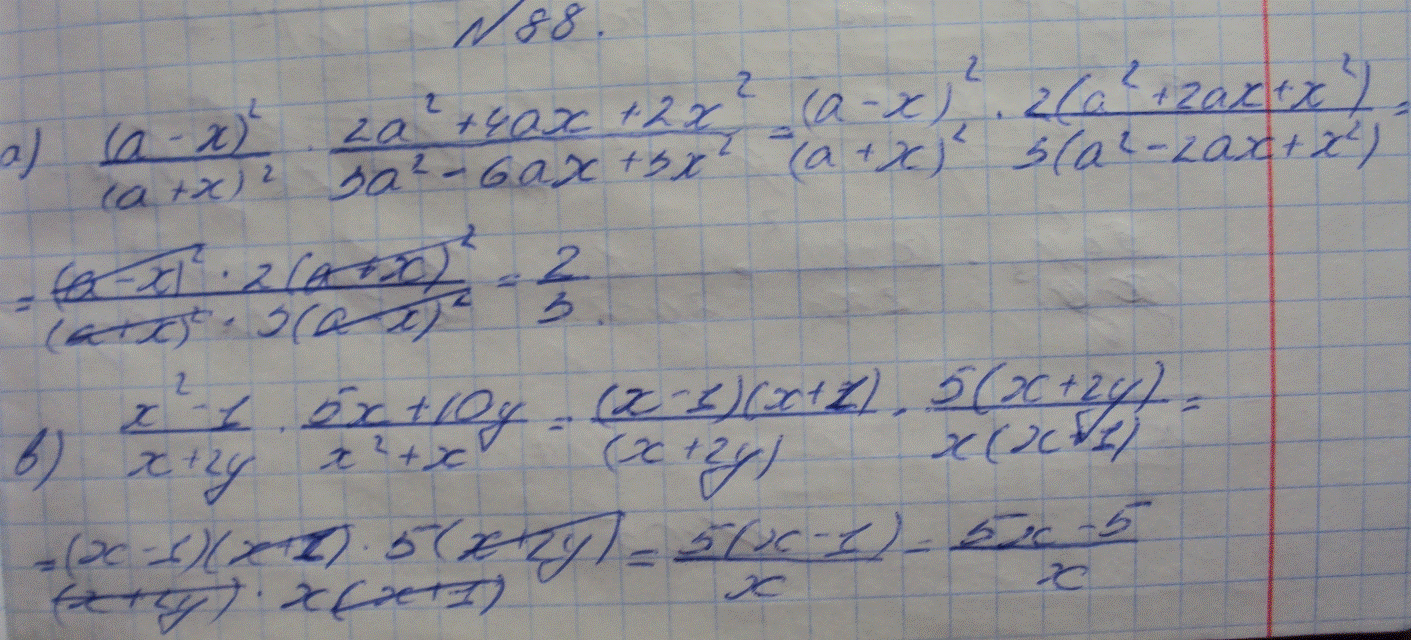 №88.
а) (a - x)²/(a + x)² · (2a² + 4ax + 2x²)/(3a² - 6ax + 3x²) = (a - x)²/(a + x)² · 2(a² + 2ax + x²)/3(a² - 2ax + x²) =
= (a - x)² · 2(a + x)²/(a + x)² · 3(a - x)² = 2/3.
в) (x² - 1)/(x + 2y) · (5x + 10y)/(x² + x) = (x - 1)(x + 1)/(x + 2y) · 5(x + 2y)/x(x + 1) =
= (x - 1)(x + 1) · 5(x + 2y)/(x + 2y) · x(x + 1) = 5(x - 1)/x = (5x - 5)/x